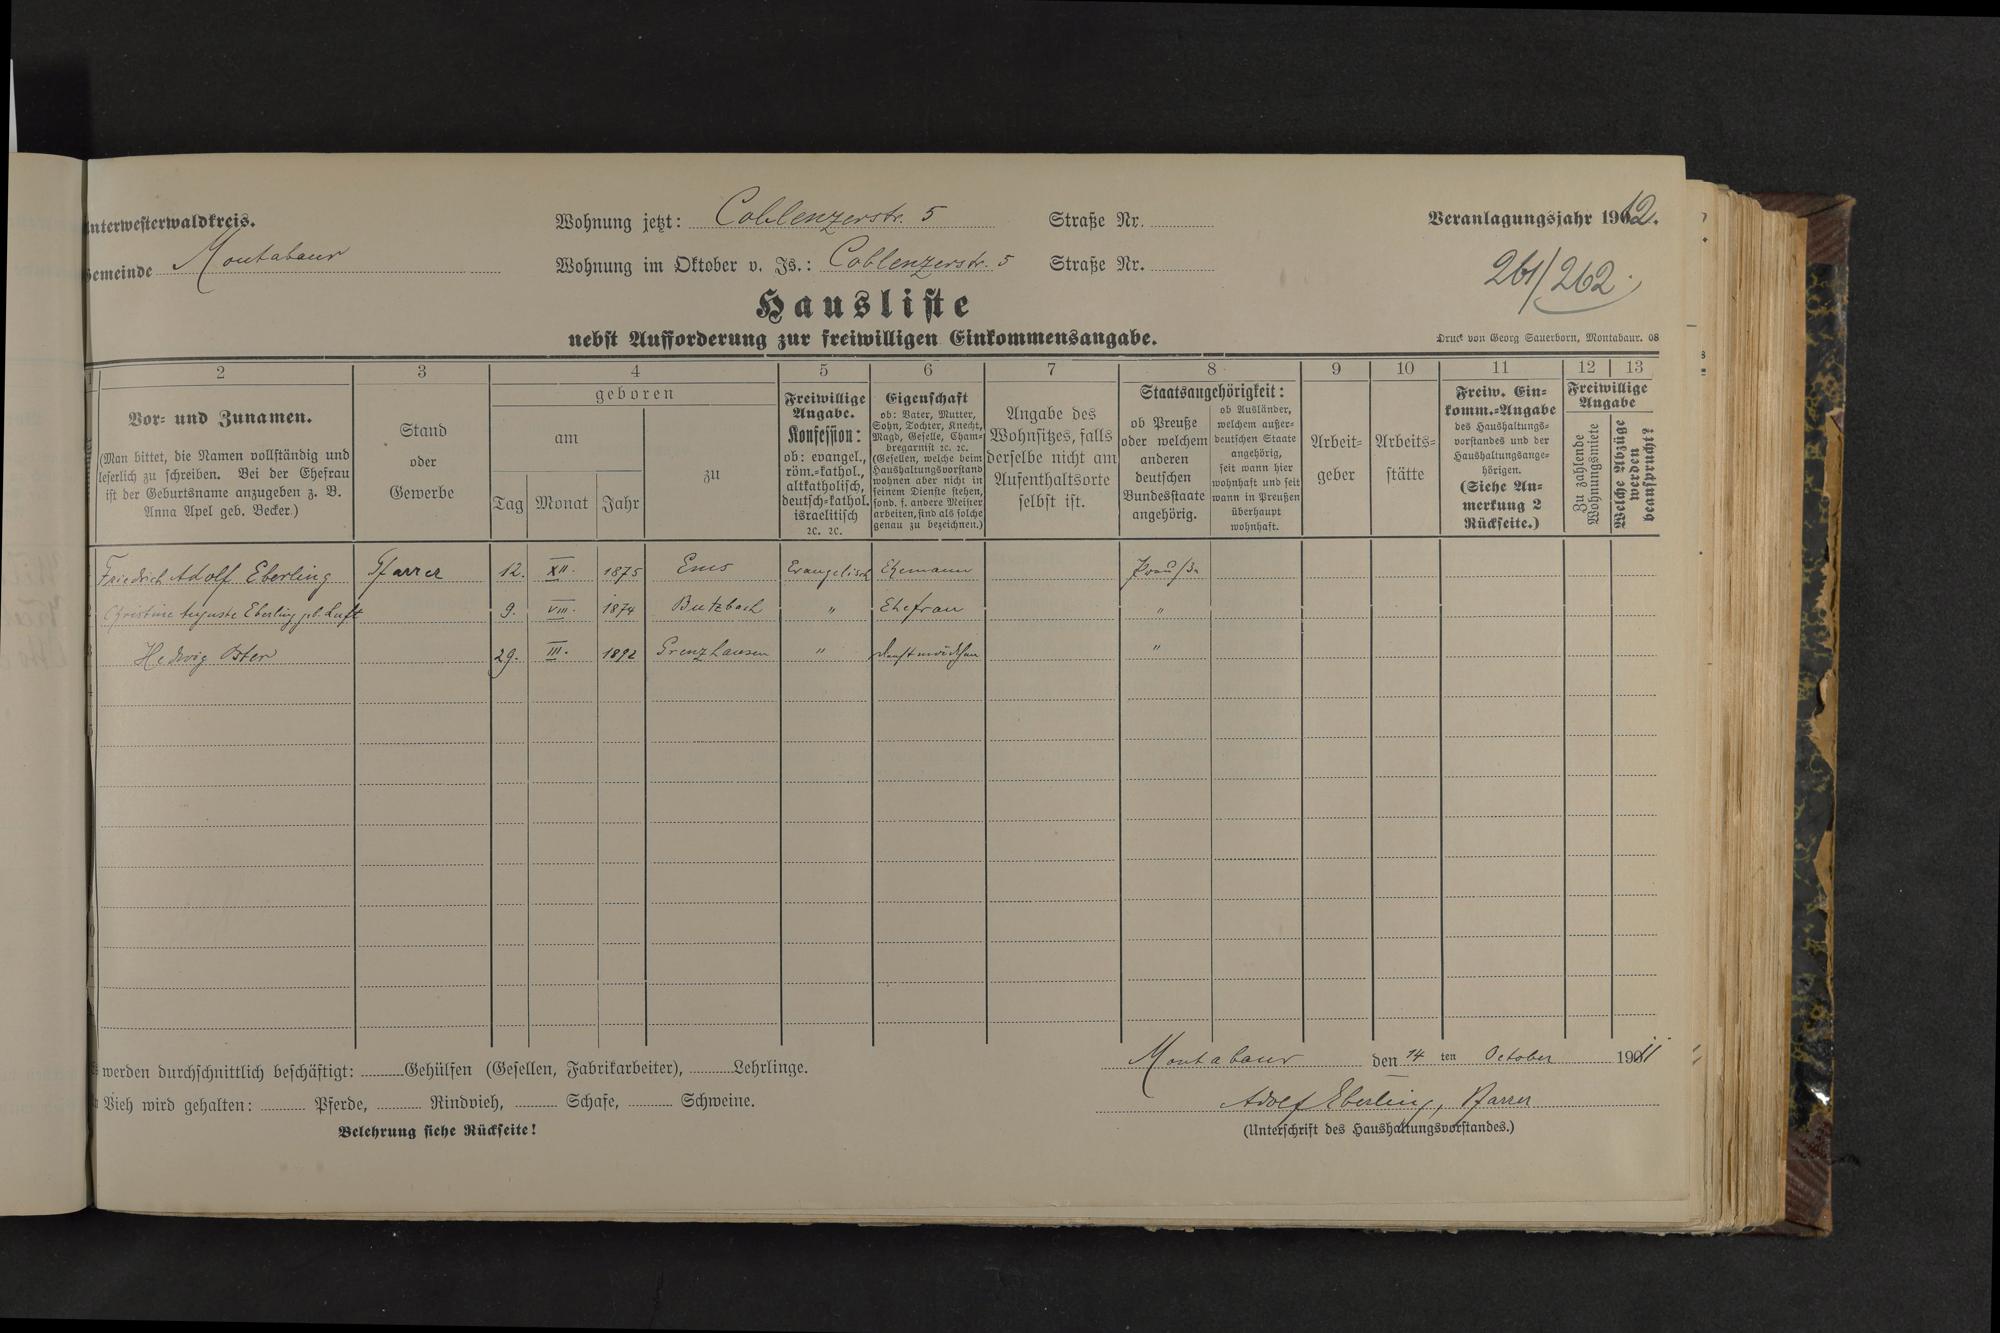 Unterwesterwaldkreis.
Gemeinde Montabaur
Wohnung jetzt: Coblenzerstr. 5 Straße Nr.
Wohnung im Oktober v. Js.: Coblenzerstr. 5 Straße Nr.
Veranlagungsjahr 1912.
261/262.
Hausliste
nebst Aufforderung zur freiwilligen Einkommensangabe.
Druck von Georg Sauerborn, Montabaur. 08
1 2 3 4 5 6 7 8 9 10 11 12 13
Vor- und Zunamen.
(Man bittet, die Namen vollständig und
leserlich zu schreiben. Bei der Ehefrau
ist der Geburtsname anzugeben z. B.
Anna Apel geb. Becker.)
Stand
oder
Gewerbe
geboren
am
Tag Monat Jahr
zu
Freiwillige
Angabe.
Konfession:
ob: evangel.,
röm.-kathol.,
altkatholisch,
deutsch-kathol.
israelitisch
ꝛc. ꝛc.
Eigenschaft
ob: Vater, Mutter,
Sohn, Tochter, Knecht,
Magd, Geselle, Cham-
bregarnist ꝛc. ꝛc.
(Gesellen, welche beim
Haushaltungsvorstand
wohnen aber nicht in
seinem Dienste stehen,
sond. f. andere Meister
arbeiten, sind als solche
genau zu bezeichnen.)
Angabe des
Wohnsitzes, falls
derselbe nicht am
Aufenthaltsorte
selbst ist.
Staatsangehörigkeit:
ob Preuße
oder welchem
anderen
deutschen
Bundesstaate
angehörig.
ob Ausländer,
welchem außer-
deutschen Staate
angehörig,
seit wann hier
wohnhaft und seit
wann in Preußen
überhaupt
wohnhaft.
Arbeit-
geber
Arbeits-
stätte
Freiw. Ein-
komm.-Angabe
des Haushaltungs-
vorstandes und der
Haushaltungsange-
hörigen.
(Siehe An-
merkung 2
Rückseite.)
Freiwillige
Angabe
Zu zahlende
Wohnungsmiete
Welche Abzüge
werden
beansprucht?
Friedrich Adolf Eberling Pfarrer 12. XII. 1875 Ems Evangelisch Ehemann Preuße
Christine Auguste Eberling geb. Luft 9. VIII. 1874 Butzbach " Ehefrau "
Hedwig Oster 29. III. 1892 Grenzhausen " Dienstmädchen "
werden durchschnittlich beschäftigt: Gehülfen (Gesellen, Fabrikarbeiter), Lehrlinge.
Vieh wird gehalten: Pferde, Rindvieh, Schafe, Schweine.
Belehrung siehe Rückseite!
Montabaur den 14 ten October 1911
Adolf Eberling, Pfarrer
(Unterschrift des Haushaltungsvorstandes.)